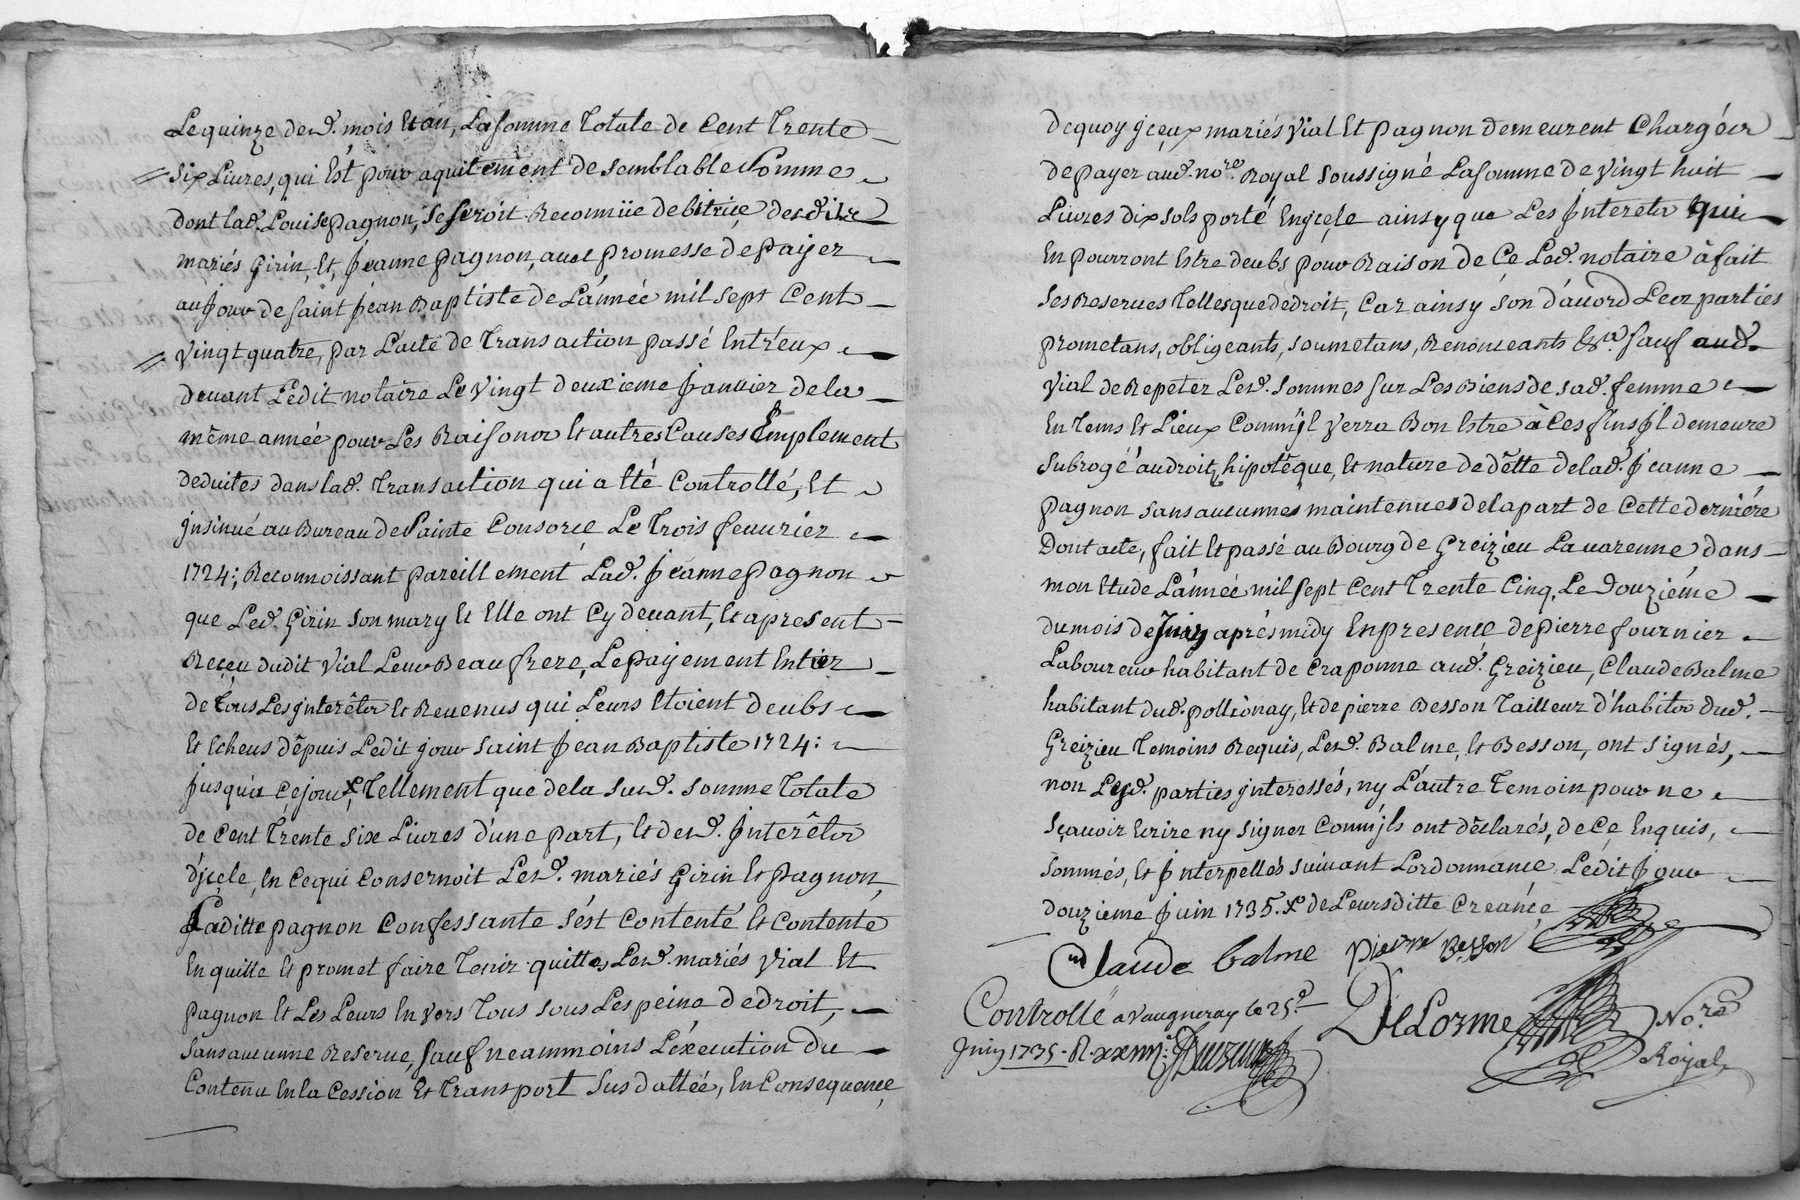 Lequinze desd. mois Et an, La somme Totale de Cent Trente
Six Livres, qui Est pour aquitement de semblable Somme
dont lad. Louise pagnon, Se seroit Reconnüe debitrice desdits
mariés Girin, Et, Jeanne pagnon, avec promesse de payer
au Jour de saint Jean Baptiste de L'année mil sept Cent
vingt quatre, par L'acte de Transaction passé Entr'eux
devant Ledit notaire Le vingt deuxieme Janvier de la
même année pour Les Raisons Et autres Causes Emplement
deduites dans lad. Transaction qui a Eté Controllé, Et
Jnsinué au Bureau de Sainte Consorce Le Trois fevrier
1724; Reconnoissant pareillement Lad. Jeanne pagnon
que Led. Girin son mary Et Elle ont Cy devant, Et apresent
Reçeu dudit Vial Leur Beau frere, Le payement Entier
de Tous Les jnterêts Et Revenus qui Leurs Etoient deubs
Et Echeus dêpuis Ledit jour saint Jean Baptiste 1724:
jusqu'a Cejour x, Tellement que de la susd. somme Totale
de Cent Trente six Livres d'une part, Et desd. Jnterêts
d'jcele, En Cequi Consernoit Lesd. mariés Girin Et pagnon,
Laditte pagnon Confessante s'est Contenté Et Contente
En quitte Et promet faire Tenir quittes Lesd. mariés Vial Et
pagnon Et Les Leurs Envers Tous sous Les peine de droit,
Sans aucunne Reserve, sauf neammoins L'éxecution du
Contenu En la Cession Et Transport Sus dattée, En Consequence
dequoy jceux mariés Vial Et pagnon demeurent Chargées
de payer aud. no.re Royal soussigné La somme de Vingt huit
Livres dix sols porté En jcele ainsy que Les Jnterets qui
En pourront Estre deubs pour Raison de Ce Led. notaire à fait
ses Reserves Telles que de droit, Car ainsy son d'acord Les parties
prometans, obligeants, soumetans, Renonceants &ca sauf aud.
Vial de Repeter Lesd. sommes sur Les Biens de sad. femme
En Tems Et Lieux Comm'jl Verra Bon Estre à Ces fins Jl demeure
Subrogé au droit, hipotêque, Et nature de dêtte de lad. Jeanne
pagnon sans aucunnes maintenues de la part de Cette derniére
Dont acte, fait Et passé au Bourg de Greizieu La varenne, dans
mon Etude L'année mil sept Cent Trente Cinq, Le Douziéme
du mois de Juin aprés midy En presence de pierre fournier
Laboureur habitant de Craponne aud. Greizieu, Claude Balme
habitant dud. pollionay, Et de pierre Besson Tailleur d'habits dud.
Greizieu Temoins Requis, Lesd. Balme, Et Besson, ont signés,
non Lesd. parties jnteressés, ny L'autre Temoin pour ne
sçavoir Ecrire ny signer Comm'jls ont dêclarés, de Ce Enquis,
sommés, Et Jnterpellés suivant L'ordonnance Ledit Jour
douzieme Juin 1735. x de Leursditte Creance
Claude balme pierre Besson
Controllé a Vaugneray le 25.e DeLorme No.re
Juin 1735. R. xxiiij s. Royal